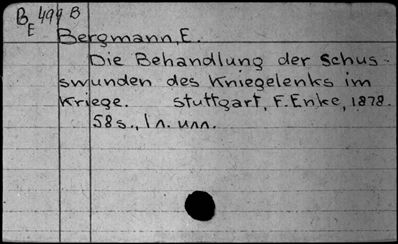 B 499 B
E
Bergmann, E.
Die Behandlung der Schus-
swunden des Kniegelenks im
Kriege. Stuttgart, F. Enke, 1878.
58 s., 1 л. илл.